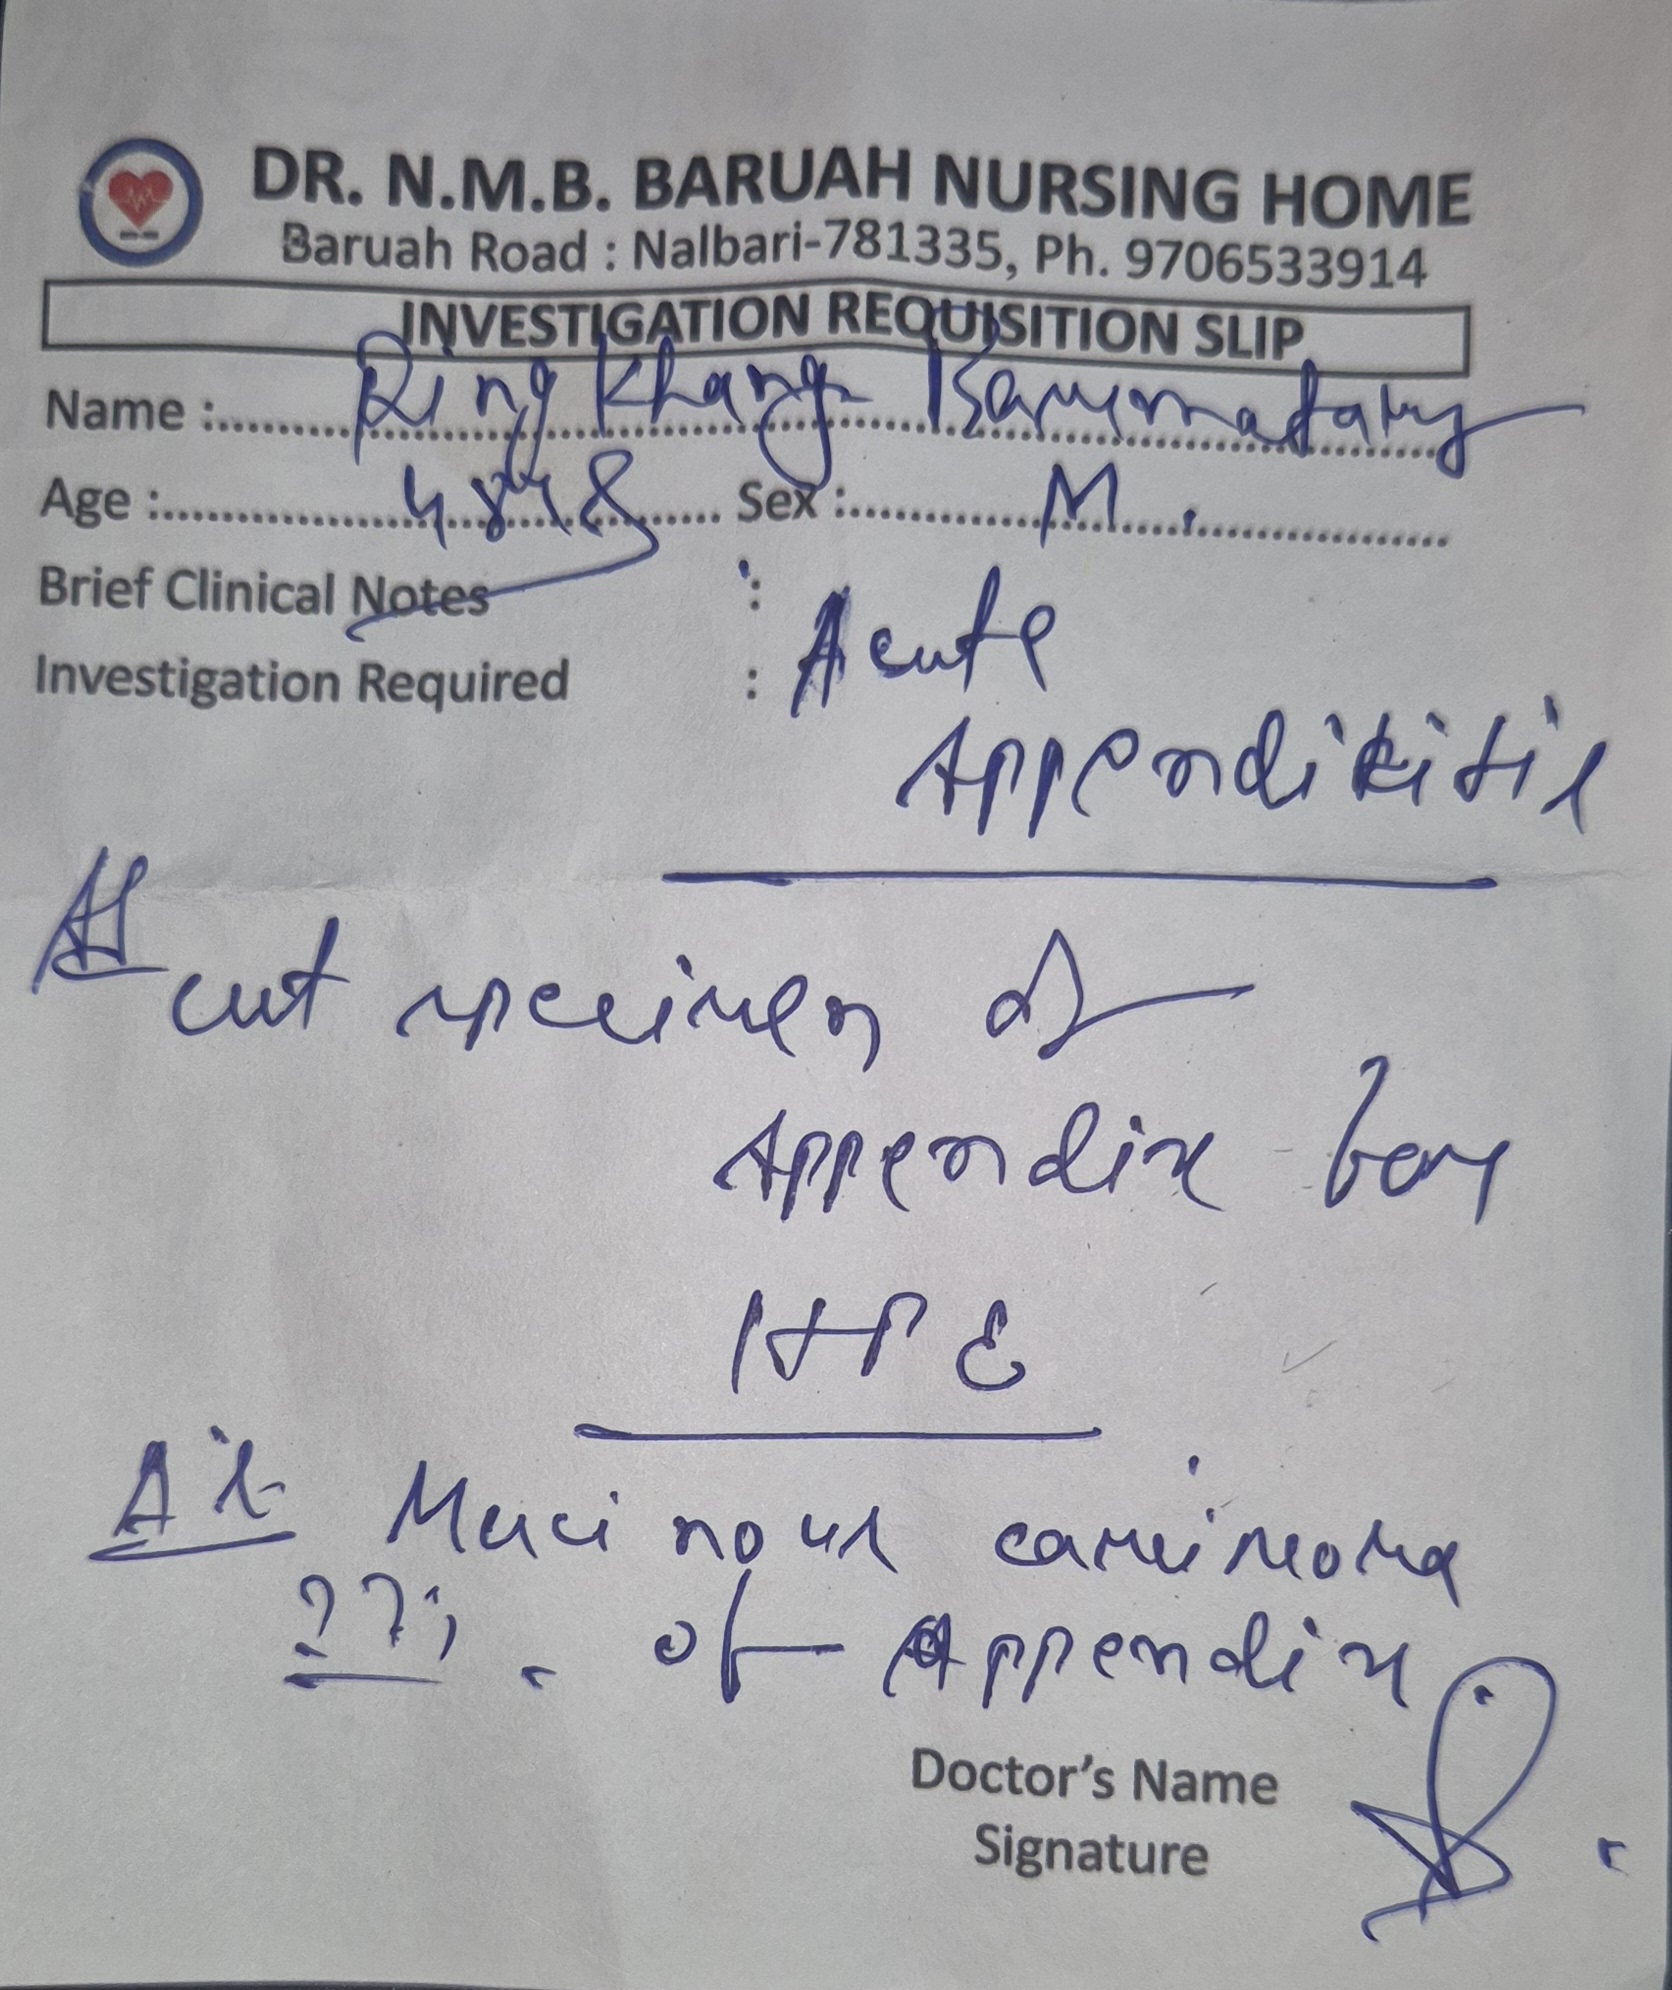 DR. N.M.B. BARUAH NURSING HOME
Baruah Road : Nalbari-781335, Ph. 9706533914
INVESTIGATION REQUISITION SLIP
Name : Ring Khang
Age : 48 Sex : M.
Brief Clinical Notes : Acute
Investigation Required :
Appendikitis
cut specimen of
Appendix for
HPE
Mucinous carcinoma
?? of Appendix.
Doctor's Name
Signature